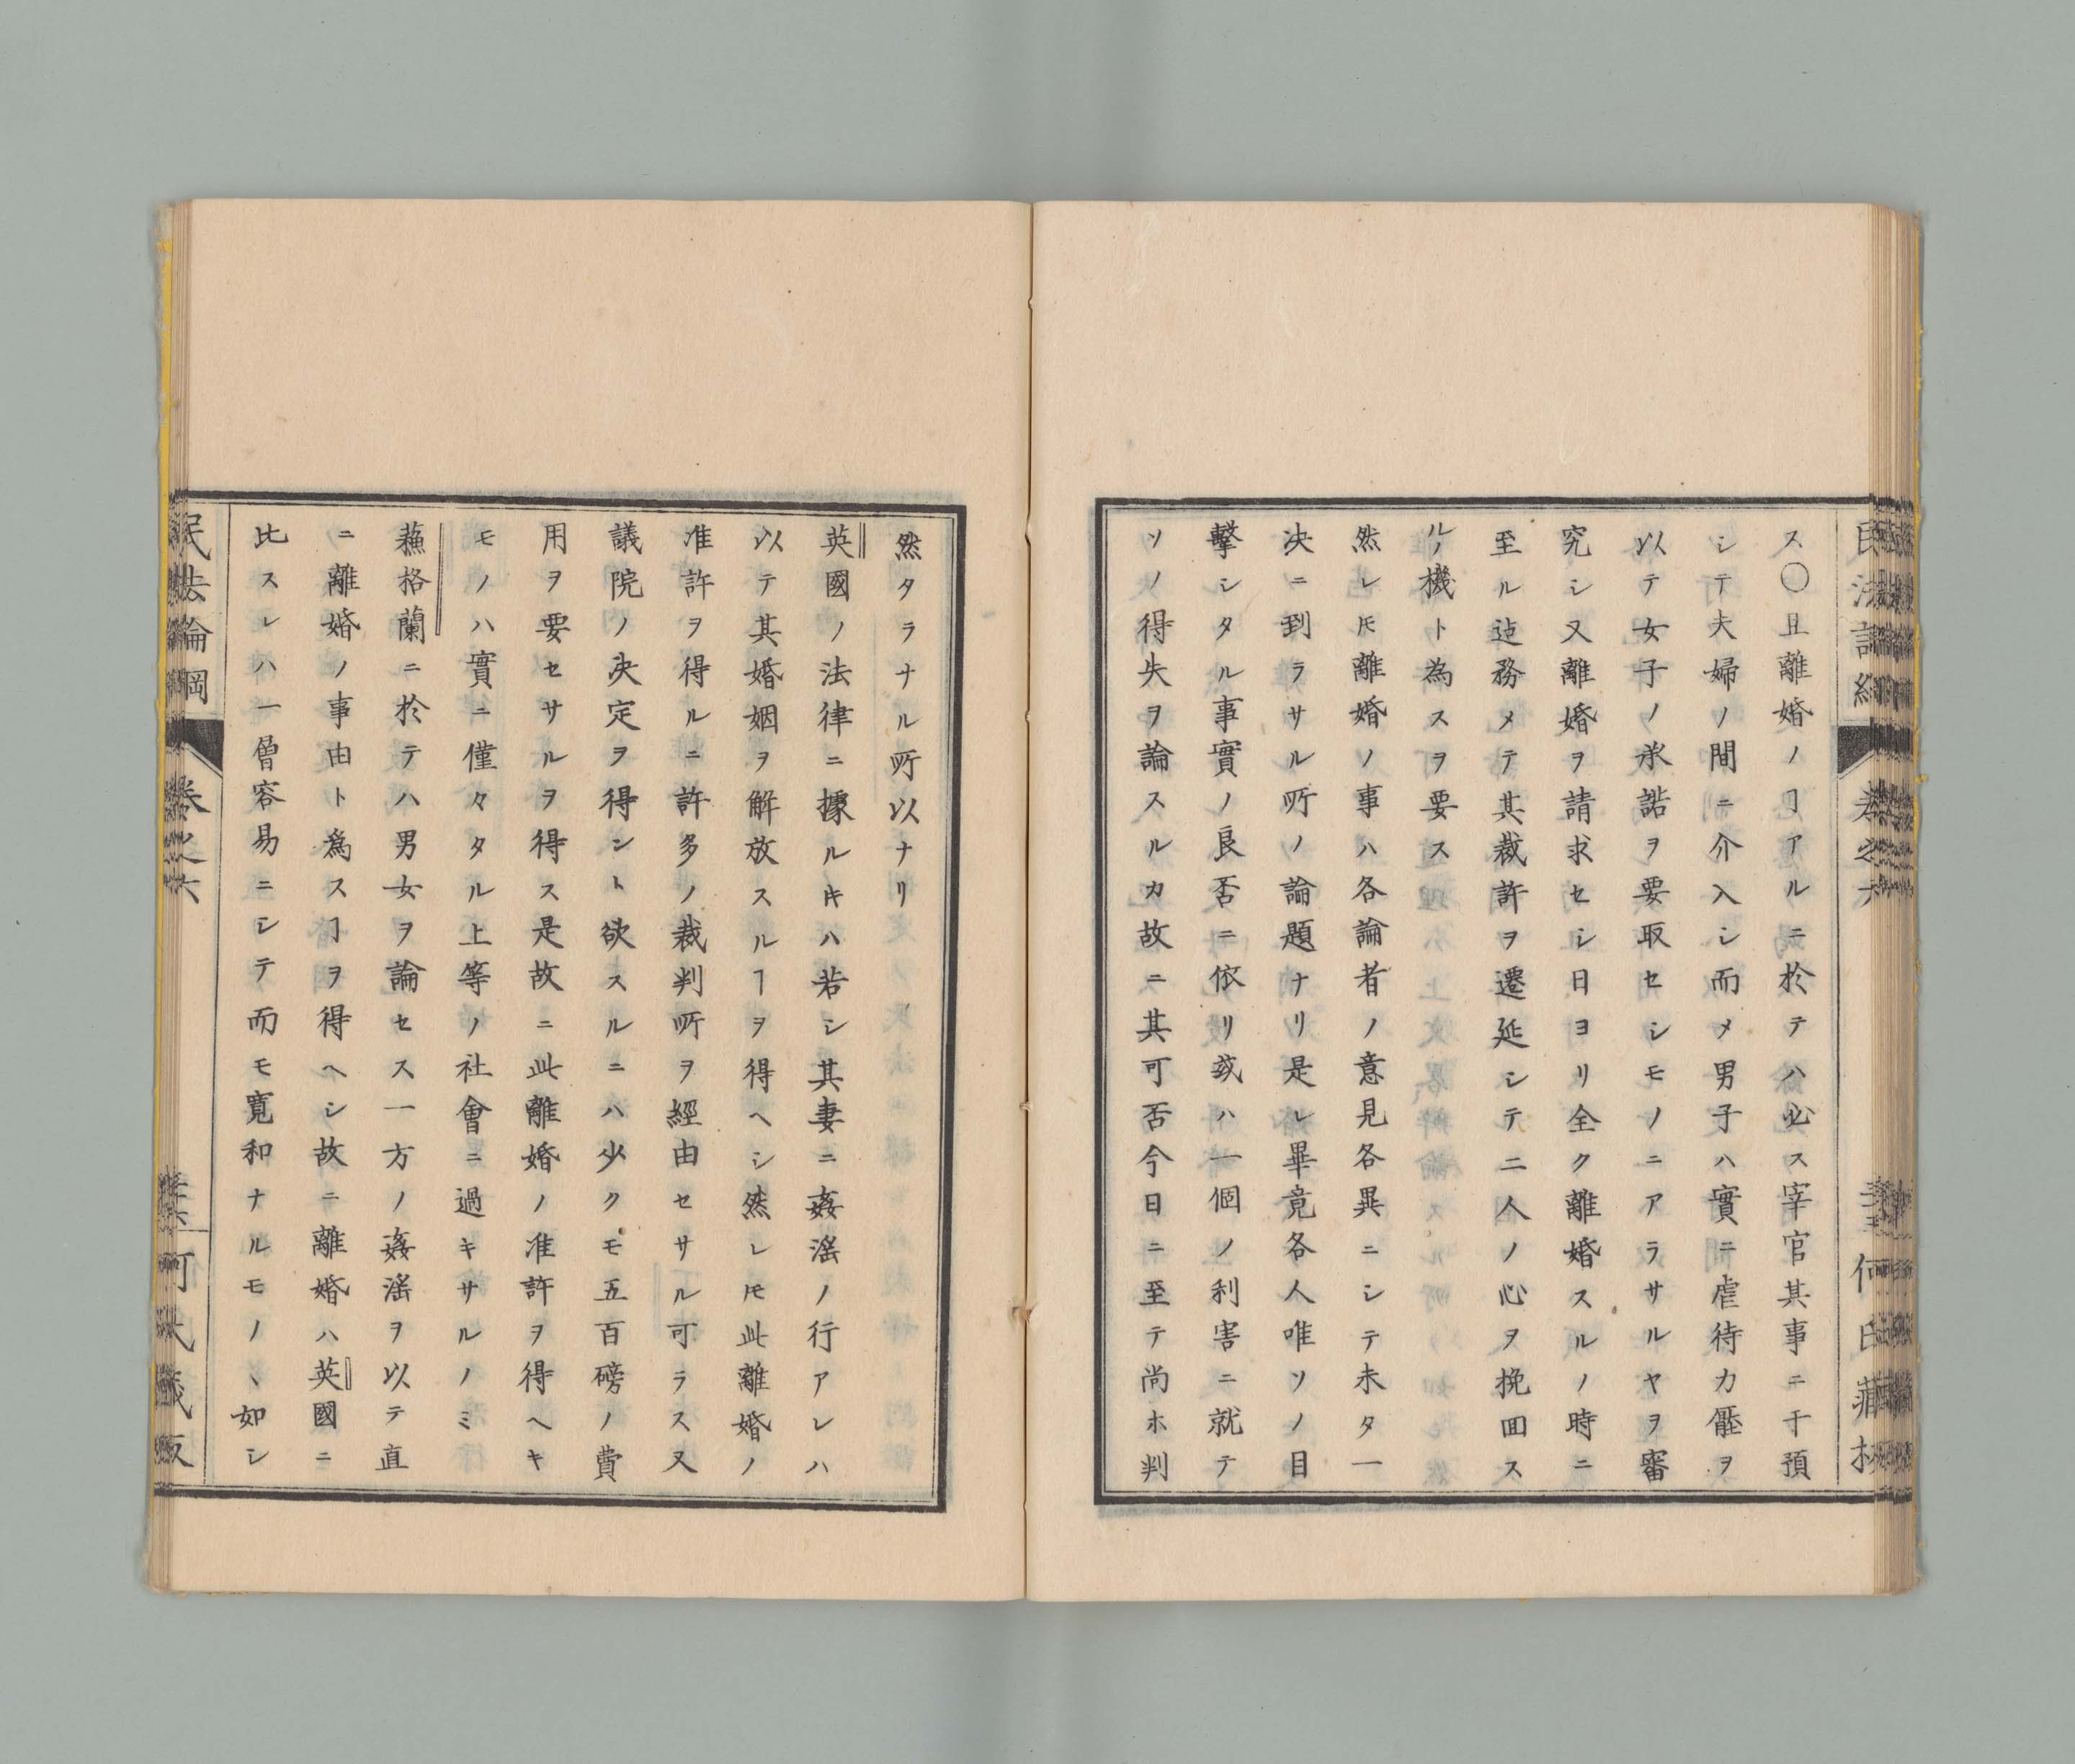 ス〇且離婚ノヿアルニ於テハ必ス宰官其事ニ干預
シテ夫婦ノ間ニ介入シ而メ男子ハ實ニ虐待カ壓ヲ
以テ女子ノ承諾ヲ要取セシモノニアラサルヤヲ審
究シ又離婚ヲ請求セシ日ヨリ全ク離婚スルノ時ニ
至ル迠務メテ其裁許ヲ遷延シテ二人ノ心ヲ挽回ス
ルノ機ト為スヲ要ス
然レ𪜈離婚ノ事ハ各論者ノ意見各異ニシテ未タ一
决ニ到ラサル所ノ論題ナリ是レ畢竟各人唯ソノ目
擊シタル事實ノ良否ニ依リ或ハ一個ノ利害ニ就テ
ソノ得失ヲ論スルカ故ニ其可否今日ニ至テ尚ホ判
然タラナル所以ナリ
英國ノ法律ニ據ル𬼀ハ若シ其妻ニ姦淫ノ行アレハ
以テ其婚姻ヲ解放スルヿヲ得ヘシ然レ𪜈此離婚ノ
准許ヲ得ルニ許多ノ裁判所ヲ經由セサル可ラス又
議院ノ决定ヲ得ント欲スルニハ少クモ五百磅ノ費
用ヲ要セサルヲ得ス是故ニ此離婚ノ准許ヲ得ヘキ
モノハ實ニ僅々タル上等ノ社會ニ過キサルノミ
蘓格蘭ニ於テハ男女ヲ論セス一方ノ姦淫ヲ以テ直
ニ離婚ノ事由ト爲スヿヲ得ヘシ故ニ離婚ハ英國ニ
比スレハ一層容易ニシテ而モ寬和ナルモノヽ如シ
民法論綱 卷之六 何氏藏板